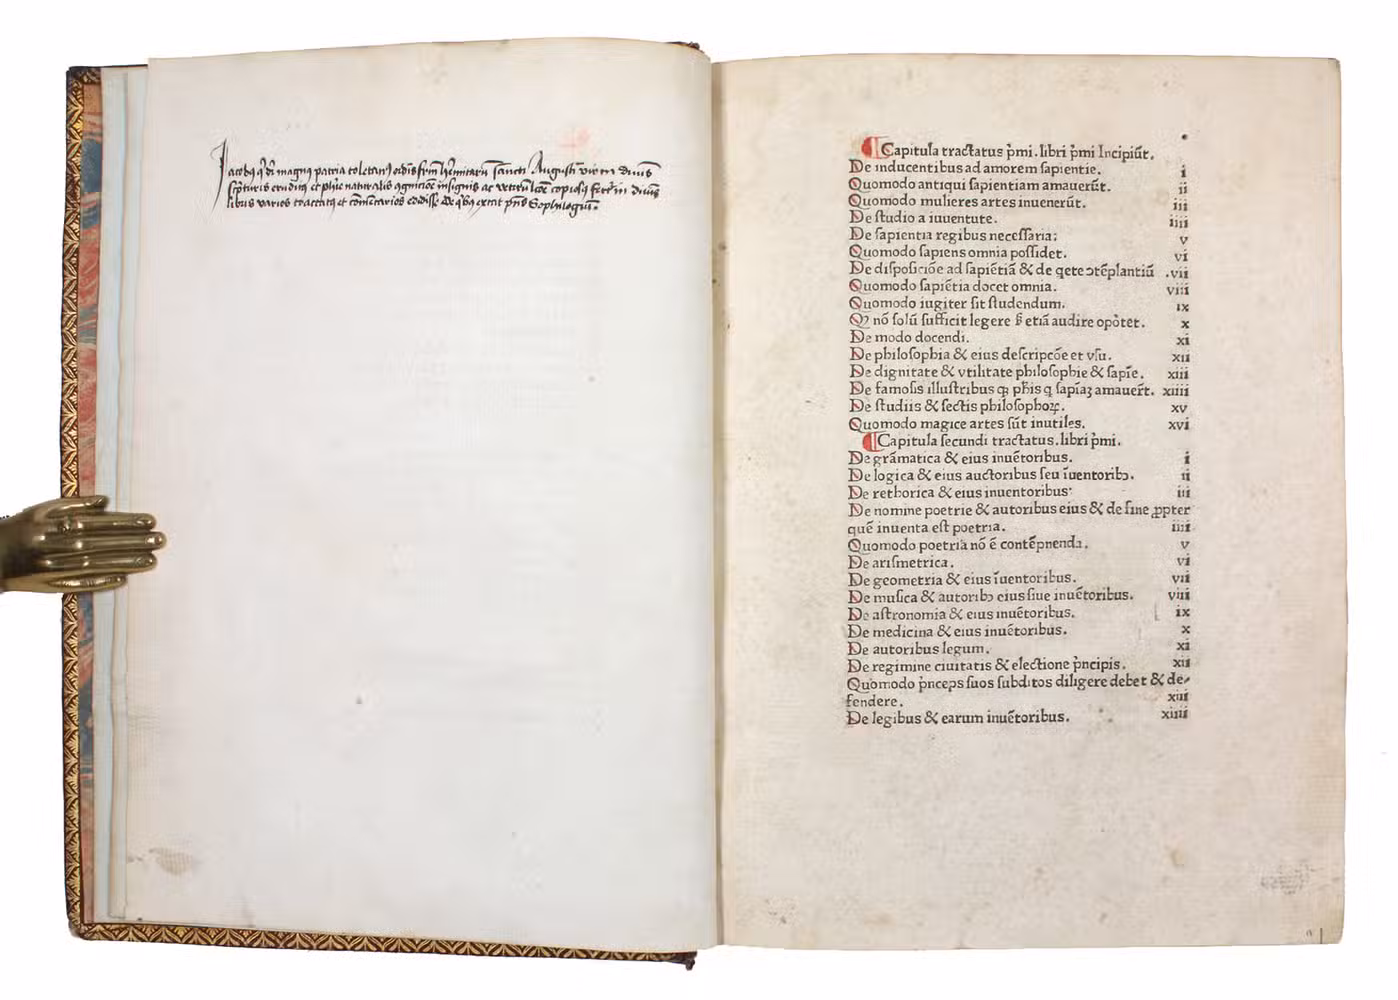 Jacobꝰ qͥ dr̃ magnꝰ patria toletanꝰ ordĩs frm̃ hermitarũ sancti Augustĩ vir in diuis
scptuᵉis eruditꝰ et phiẽ naturalis insignis ac copiosꝰ fert᷑ in diuis
libris varios tractatꝰ et comẽtarios edidisse de qbꝰ extat pñs Sophilogiũ.
¶ Capitula tractatus p̃mi. libri p̃mi Incipiũt.
De inducentibus ad amorem sapientie. i
Quomodo antiqui sapientiam amauerũt. ii
Quomodo mulieres artes inuenerũt. iii
De studio a iuuentute. iiii
De sapientia regibus necessaria: v
Quomodo sapiens omnia possidet. vi
De disposiciõe ad sapiẽtiã & de qete ↄtẽplantiũ .vii
Quomodo sapiẽtia docet omnia. viii
Quomodo iugiter sit studendum. ix
Qꝫ nõ solũ sufficit legere ß etiã audire opòtet. x
De modo docendi. xi
De philosophia & eius descripcõe et vsu. xii
De dignitate & vtilitate philosophie & sapĩe. xiii
De famosis illustribus qꝫ pħis q sapĩaꝫ amauer̃t. xiiii
De studiis & sectis philosophoꝝ. xv
Quomodo magice artes sũt inutiles. xvi
¶ Capitula secundi tractatus. libri p̃mi.
De grãmatica & eius inuẽtoribus. i
De logica & eius auctoribus seu ĩuentoribꝫ. ii
De rethorica & eius inuentoribus. iii
De nomine poetrie & autoribus eius & de fine ꝓpter
quẽ inuenta est poetria. iiii
Quomodo poetria nõ ẽ contẽpnenda. v
De arismetrica. vi
De geometria & eius ĩuentoribus. vii
De musica & autoribꝫ eius siue inuẽtoribus. viii
De astronomia & eius inuẽtoribus. ix
De medicina & eius inuẽtoribus. x
De autoribus legum. xi
De regimine ciuitatis & electione p̃ncipis. xii
Quomodo p̃nceps suos subditos diligere debet & de⸗
fendere. xiii
De legibus & earum inuẽtoribus. xiiii